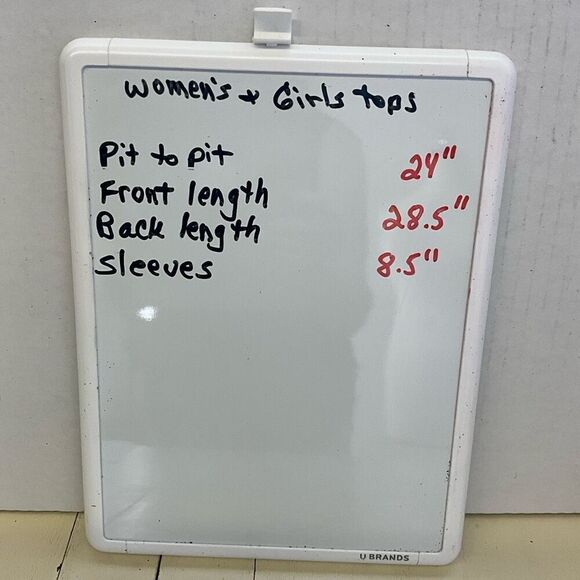 Women's & Girls tops
Pit to pit 24"
Front length
Back length 28.5"
Sleeves 8.5"
U BRANDS